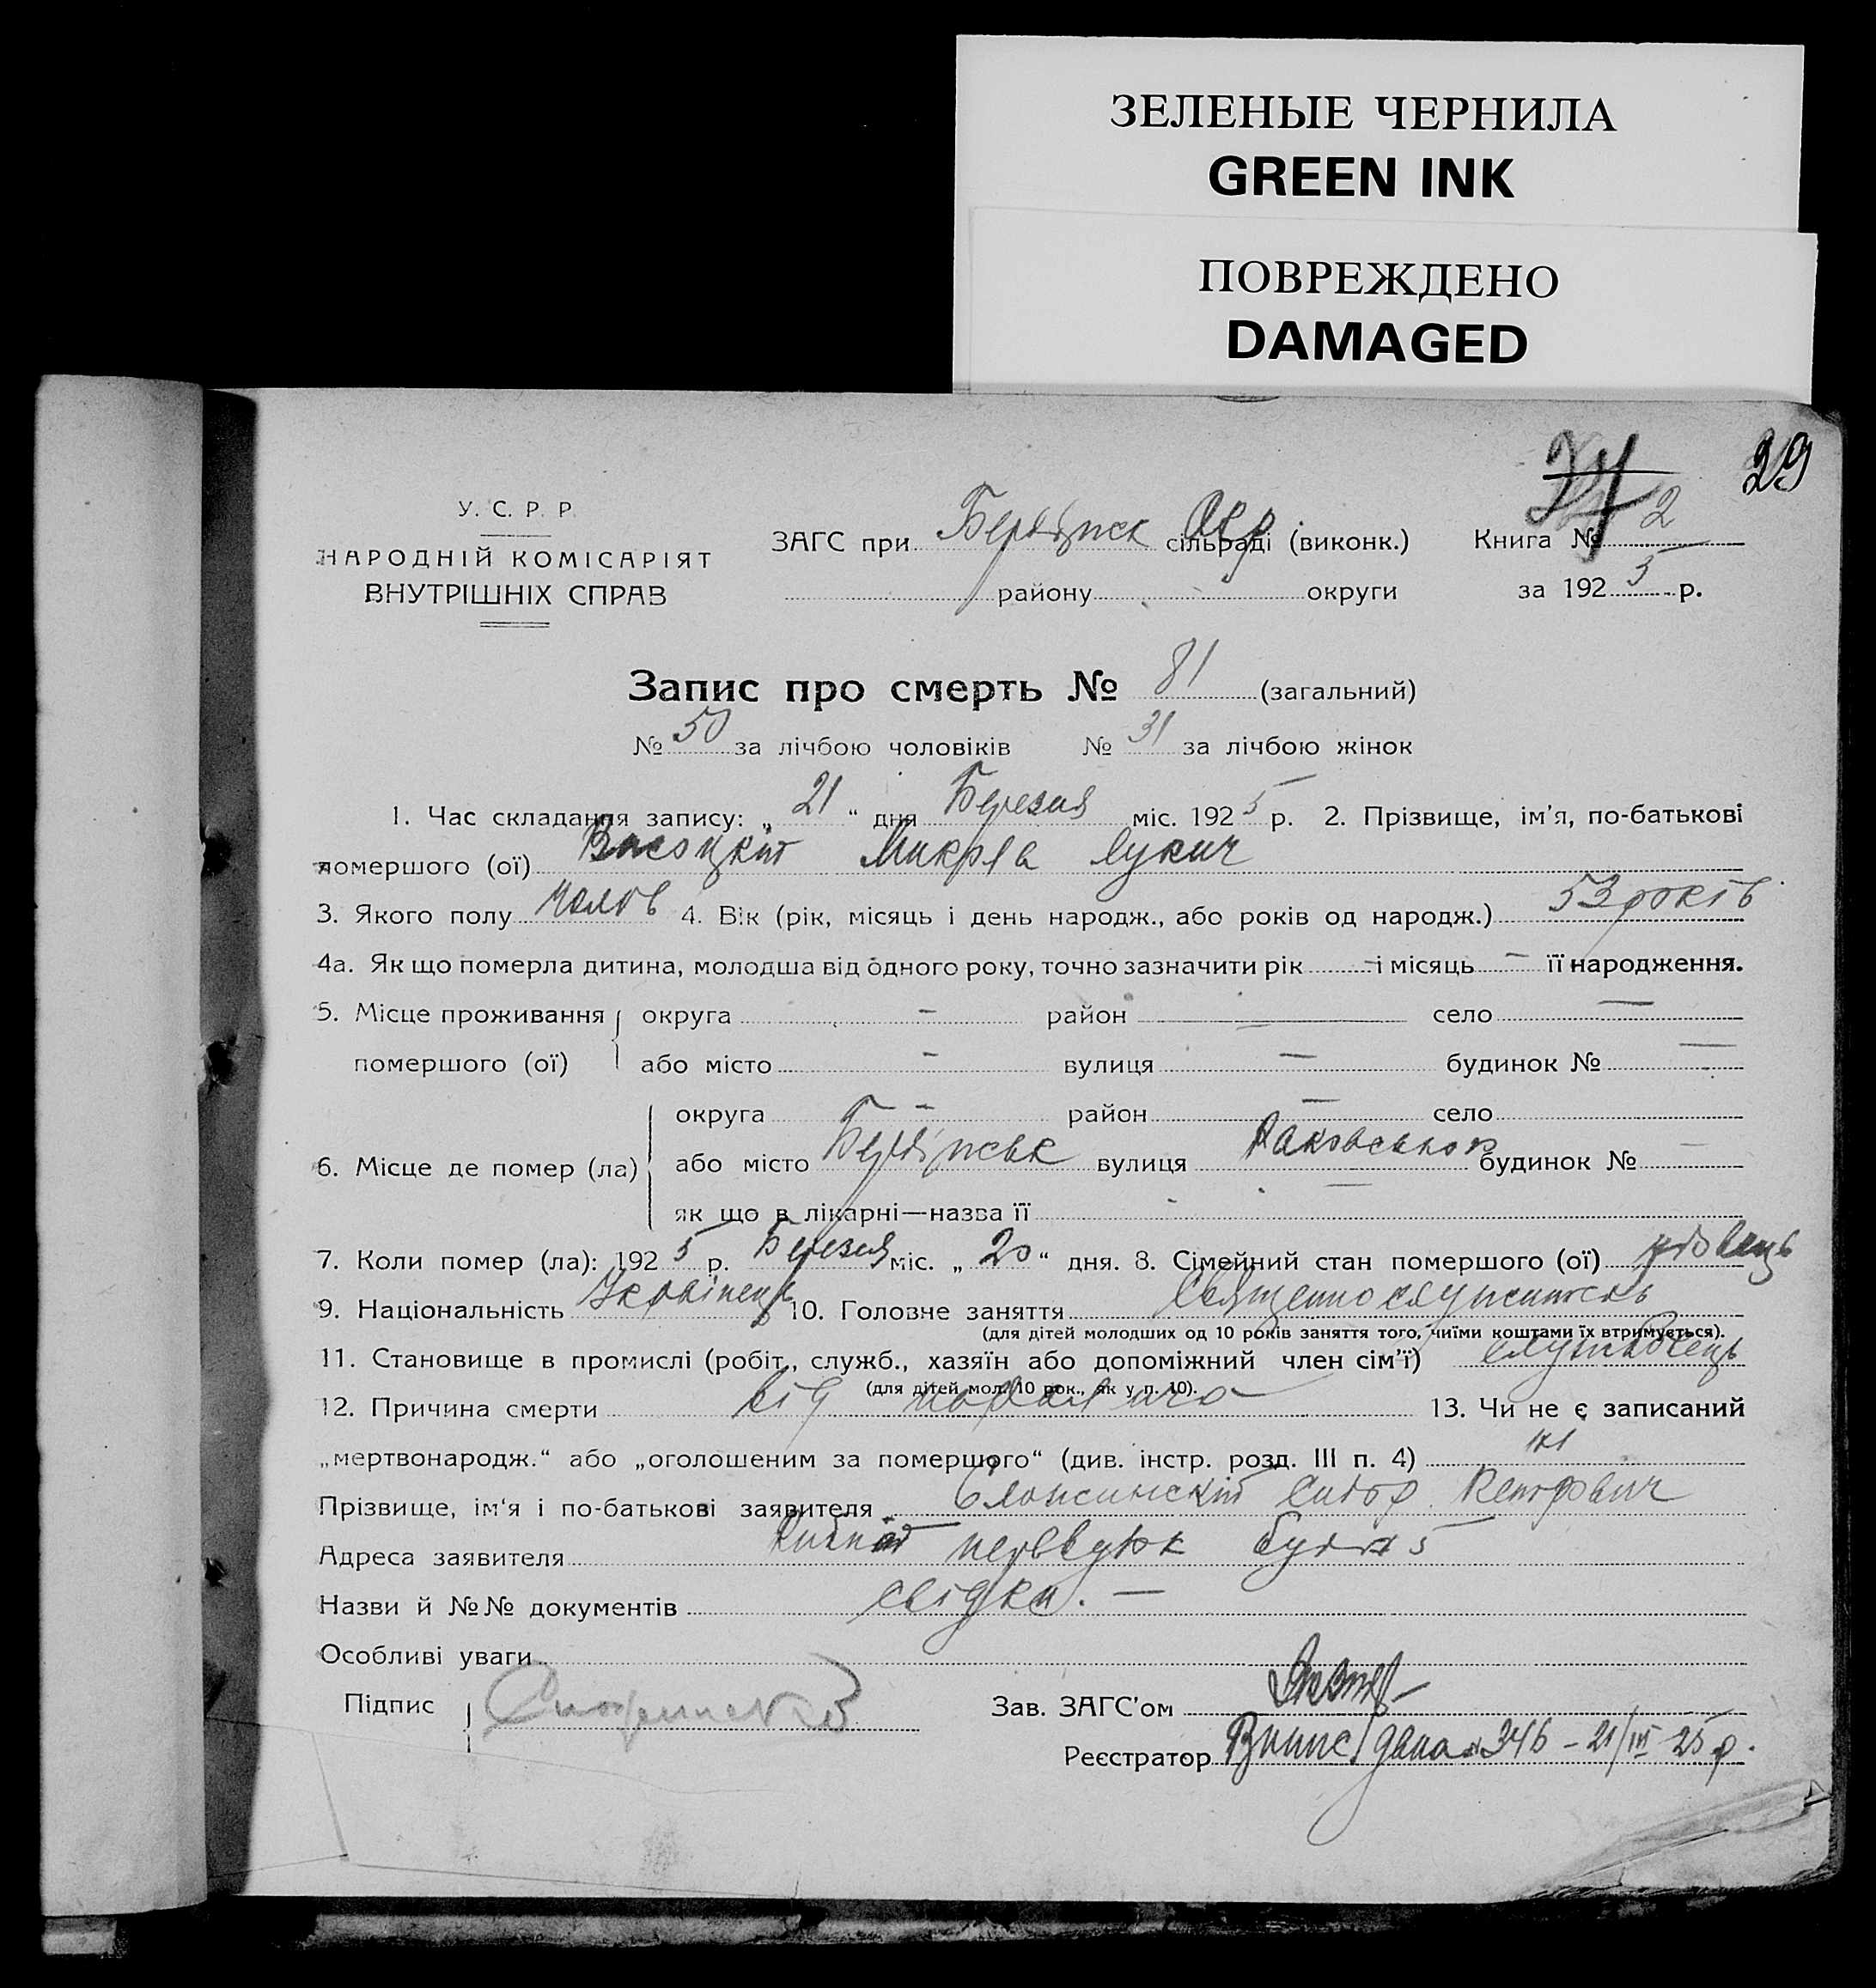 ЗЕЛЕНЫЕ ЧЕРНИЛА
GREEN INK
ПОВРЕЖДЕНО
DAMAGED
29
У. С. Р. Р.
НАРОДНІЙ КОМІСАРІЯТ
ВНУТРІШНІХ СПРАВ
ЗАГС при сільраді (виконк.)
району округи
Книга № 2
за 1925 р.
Запис про смерть № 81 (загальний)
№ 50 за лічбою чоловіків № 31 за лічбою жінок
1. Час складання запису: „ 21 “ дня Березня міс. 1925 р. 2. Прізвище, ім'я, по-батькові
помершого (ої) Висоцкій Микола Лукич
3. Якого полу Чолов 4. Вік (рік, місяць і день народж., або років од народж.) 53 років
4а. Як що померла дитина, молодша від одного року, точно зазначити рік — і місяць — її народження.
5. Місце проживання округа — район — село —
помершого (ої) або місто — вулиця — будинок № —
округа — район — село
6. Місце де помер (ла) або місто вулиця будинок № —
як що в лікарні—назва її —
7. Коли помер (ла): 1925 р. Березня міс. „ 20 “ дня. 8. Сімейний стан помершого (ої) удовець
9. Національність Українець 10. Головне заняття Священнослужитель
(для дітей молодших од 10 років заняття того, чиїми коштами їх втримується).
11. Становище в промислі (робіт., служб., хазяїн або допоміжний член сім'ї) службовець
(для дітей мол. 10 рок., як у п. 10).
12. Причина смерти від 13. Чи не є записаний
„мертвонародж.“ або „оголошеним за помершого“ (див. інстр. розд. III п. 4) ні
Прізвище, ім'я і по-батькові заявителя
Адреса заявителя 5
Назви й №№ документів свідки. —
Особливі уваги
Підпис
Зав. ЗАГС'ом
Реєстратор Випис дана № 346 – 21/III 25 р.